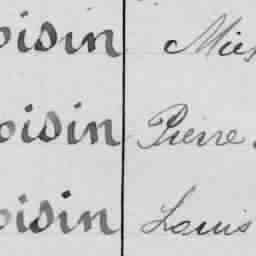 oisin Mich
oisin Pierre
oisin Louis